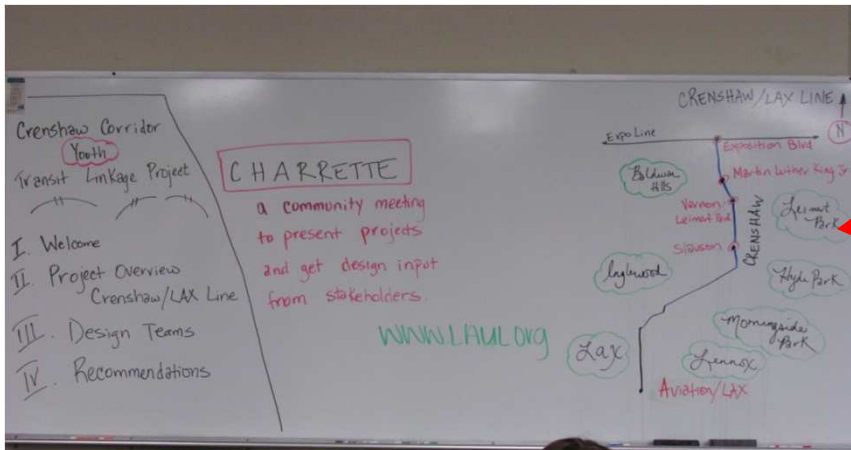 Crenshaw Corridor
Youth
Transit Linkage Project
I. Welcome
II. Project Overview
Crenshaw/LAX Line
III. Design Teams
IV. Recommendations
CHARRETTE
a community meeting
to present projects
and get design input
from stakeholders.
WWW.LAUL.org
CRENSHAW/LAX LINE
N
Expo Line
Exposition Blvd
Baldwin
Hills
Martin Luther King Jr
Vernon
Leimert Park
Slauson
CRENSHAW
Leimert
Park
Inglewood
Hyde Park
Morningside
Park
Lax
Lennox
Aviation/LAX